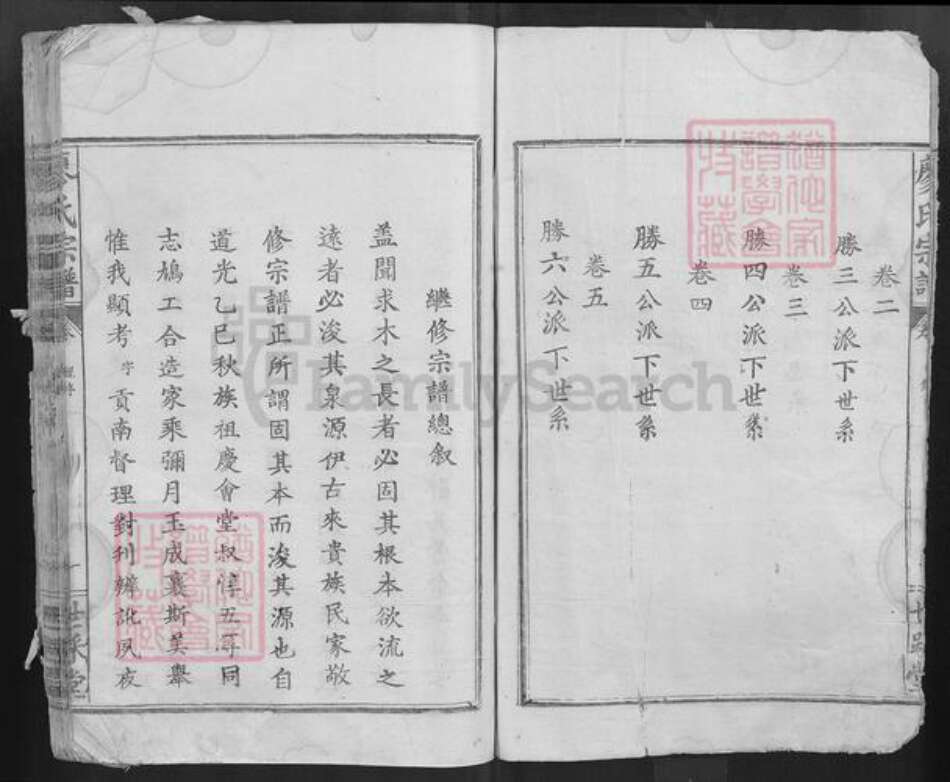 廖氏宗譜
卷二
勝三公派下世系
卷三
勝四公派下世系
卷四
勝五公派下世系
卷五
勝六公派下世系
繼修宗譜總叙
蓋聞求木之長者必固其根本欲流之
遠者必浚其泉源伊古來貴族民家敬
修宗譜正所謂固其本而浚其源也自
道光乙巳秋族祖慶會堂叔惇五等同
志鳩工合造家乘彌月玉成襄斯美舉
惟我顯考字貢南督理對刋辨訛夙夜
廖氏宗譜
FamilySearch